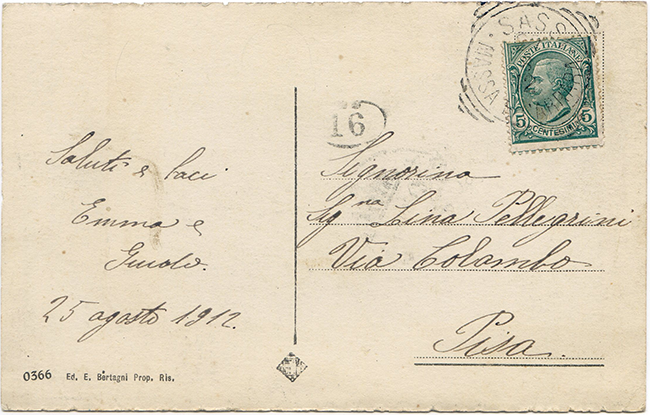 SASS
MASSA
POSTE ITALIANE
5 5
CENTESIMI
16
Saluti e baci
Emma e
Guido.
25 agosto 1912.
Signorina
Sig na Lina Pellegrini
Via Colombo
Pisa.
0366 Ed. E. Bertagni Prop. Ris.